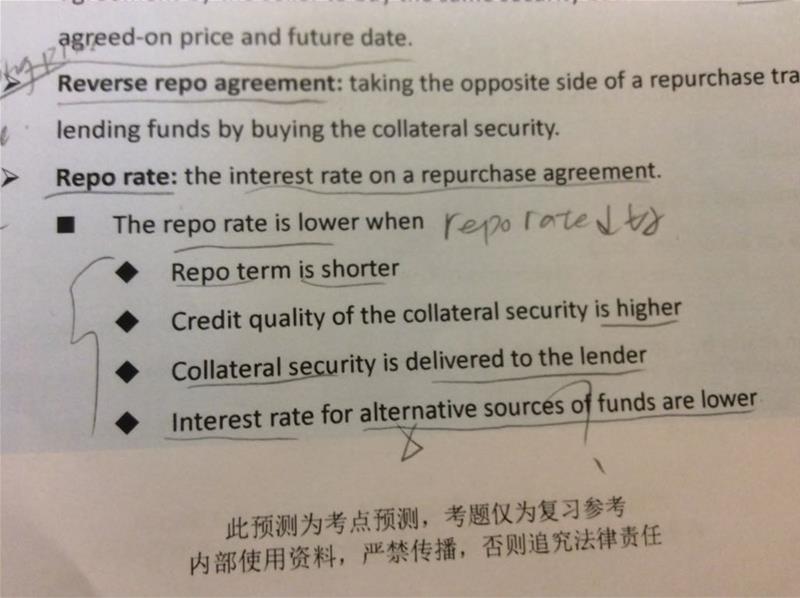 agreement by the seller to buy the same security
agreed-on price and future date.
Reverse repo agreement: taking the opposite side of a repurchase tra
lending funds by buying the collateral security.
Repo rate: the interest rate on a repurchase agreement.
The repo rate is lower when repo rate ↓
Repo term is shorter
Credit quality of the collateral security is higher
Collateral security is delivered to the lender
Interest rate for alternative sources of funds are lower
?
此预测为考点预测，考题仅为复习参考
内部使用资料，严禁传播，否则追究法律责任